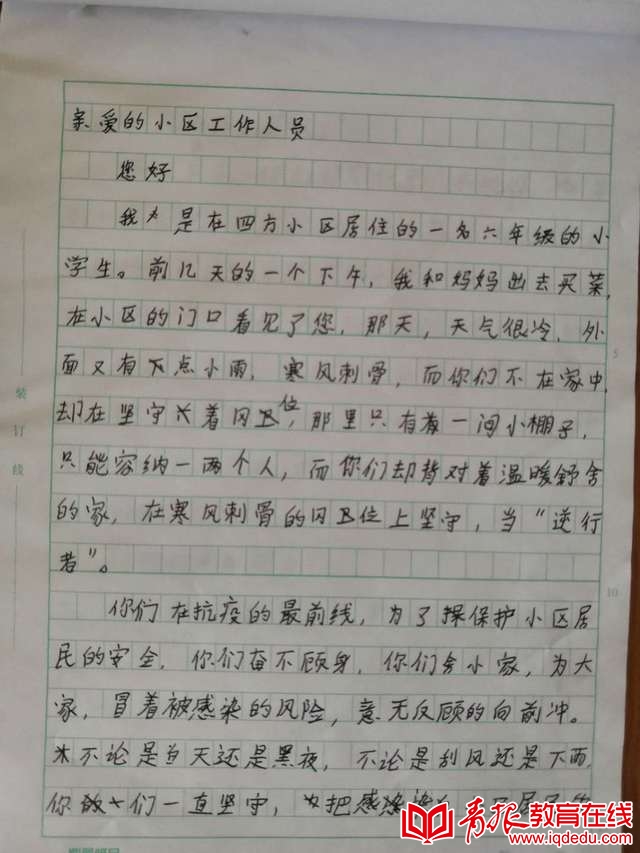 亲爱的小区工作人员
您好
我是在四方小区居住的一名六年级的小
学生。前几天的一个下午,我和妈妈出去买菜,
在小区的门口看见了您,那天,天气很冷,外
面又有下点小雨,寒风刺骨,而你们不在家中,
却在坚守着冈位,那里只有着一间小棚子,
只能容纳一两个人,而你们却背对着温暖舒舍
的家,在寒风刺骨的冈位上坚守,当“逆行
者”。
你们在抗疫的最前线,为了保护小区居
民的安全,你们奋不顾身,你们舍小家,为大
家,冒着被感染的风险,意无反顾的向前冲。
不论是白天还是黑夜,不论是刮风还是下雨,
你们一直坚守,把感染
装订线
5
10
青报教育在线
www.iqdedu.com